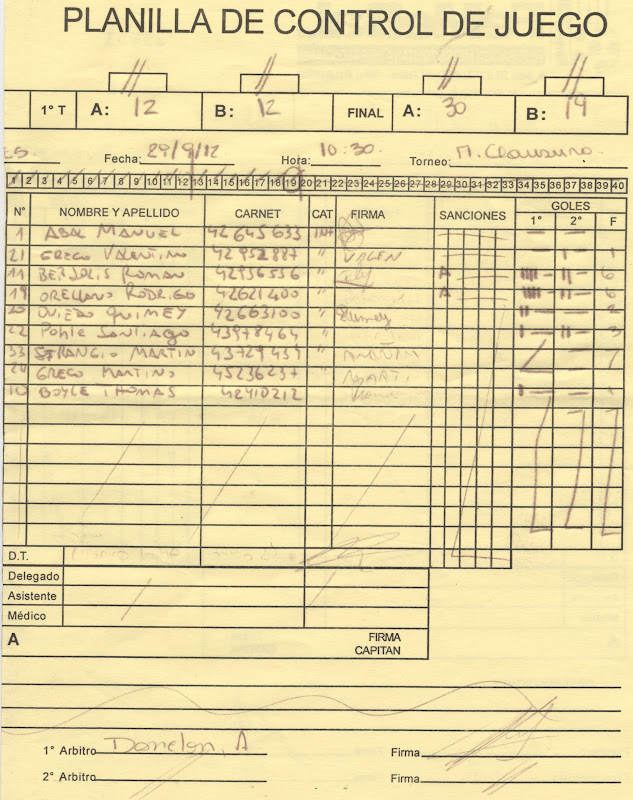 PLANILLA DE CONTROL DE JUEGO
1° T A: 12 B: 12 FINAL A: 30 B: 19
ES Fecha: 29/9/12 Hora: 10:30 Torneo: M. Clausura
1 2 3 4 5 6 7 8 9 10 11 12 13 14 15 16 17 18 19 20 21 22 23 24 25 26 27 28 29 30 31 32 33 34 35 36 37 38 39 40
N° NOMBRE Y APELLIDO CARNET CAT FIRMA SANCIONES GOLES
1° 2° F
1 ABAL MANUEL 42645633 INF
21 GRECO VALENTINO 42952887 " VALEN 1
11 BERJOLIS ROMAN 42936556 " A 6
19 ORELLANO RODRIGO 42621400 " A 6
20 OVIEDO QUIMEY 42663100 " Quimey 2
22 POHLE SANTIAGO 43978464 "
33 STRANGIO MARTIN 43729459 " MARTIN
24 GRECO MARTINO 45236237 " MARTI
10 BOYLE THOMAS 42410212 1
D.T.
Delegado
Asistente
Médico
A FIRMA
CAPITAN
1° Arbitro Donelon, A Firma
2° Arbitro Firma